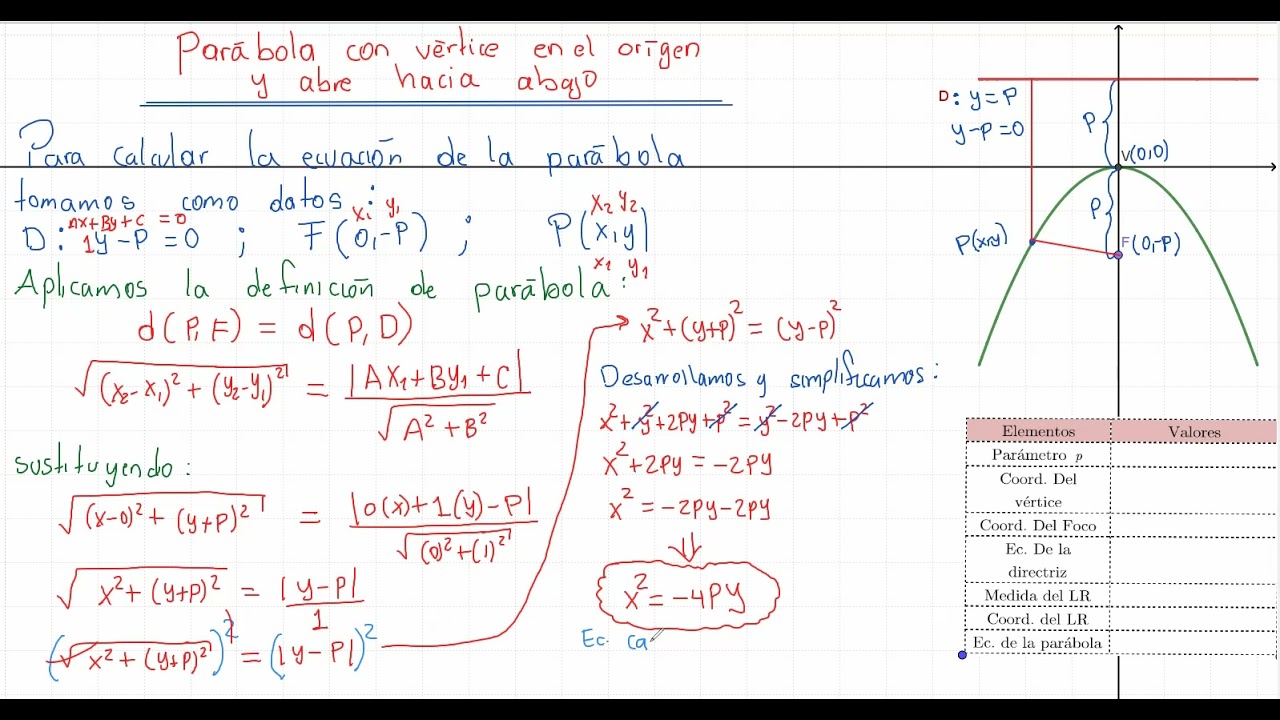 Parábola con vértice en el origen
y abre hacia abajo
Para calcular la ecuación de la parábola
tomamos como datos:
Ax+By+C = 0
x₁ y₁
x₂ y₂
D: 1y-P = 0 ; F(0,-P) ; P(x,y)
x₁ y₁
Aplicamos la definición de parábola:
d(P,F) = d(P,D)
√((x₂-x₁)² + (y₂-y₁)²) = |Ax₁+By₁+C| / √(A²+B²)
sustituyendo:
√((x-0)² + (y+P)²) = |0(x)+1(y)-P| / √((0)²+(1)²)
√(x²+(y+P)²) = |y-P| / 1
(√(x²+(y+P)²))² = (|y-P|)²
x²+(y+P)² = (y-P)²
Desarrollamos y simplificamos:
x²+y²+2Py+P² = y²-2Py+P²
x²+2Py = -2Py
x² = -2Py-2Py
x² = -4Py
Ec. Ca
D: y=P
y-P=0
P
V(0,0)
P
P(x,y)
F(0,-P)
Elementos Valores
Parámetro p
Coord. Del
vértice
Coord. Del Foco
Ec. De la
directriz
Medida del LR
Coord. del LR
Ec. de la parábola